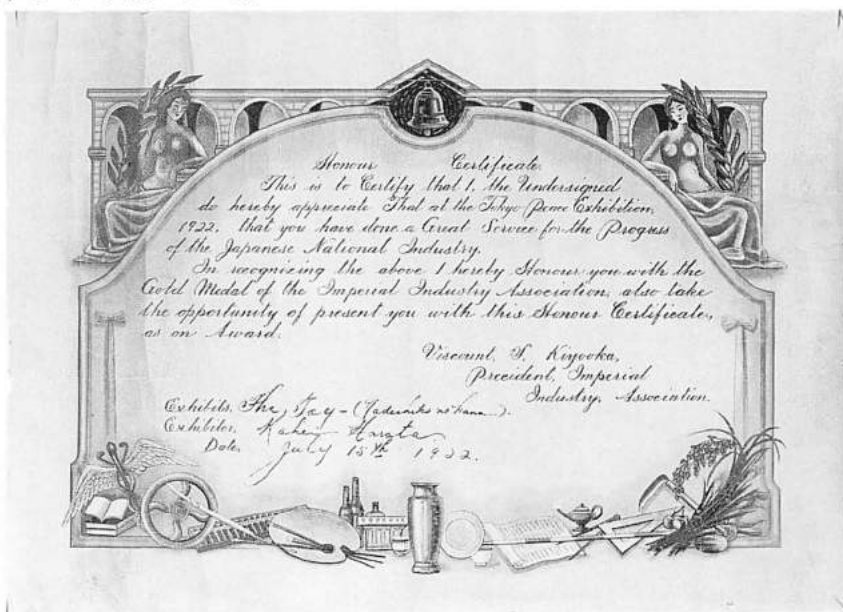 Honour Certificate.
This is to Certify that I, the Undersigned
do hereby appreciate That at the Tokyo Peace Exhibition,
1922, that you have done a Great Service for the Progress
of the Japanese National Industry.
In recognizing the above I hereby Honour you with the
Gold Medal of the Imperial Industry Association, also take
the opportunity of present you with this Honour Certificate,
as an Award.
Viscount, T. Kiyooka,
Precident, Imperial
Industry, Association.
Exhibits, The, Toy -
Exhibitor,
Date, July 15th 1922.